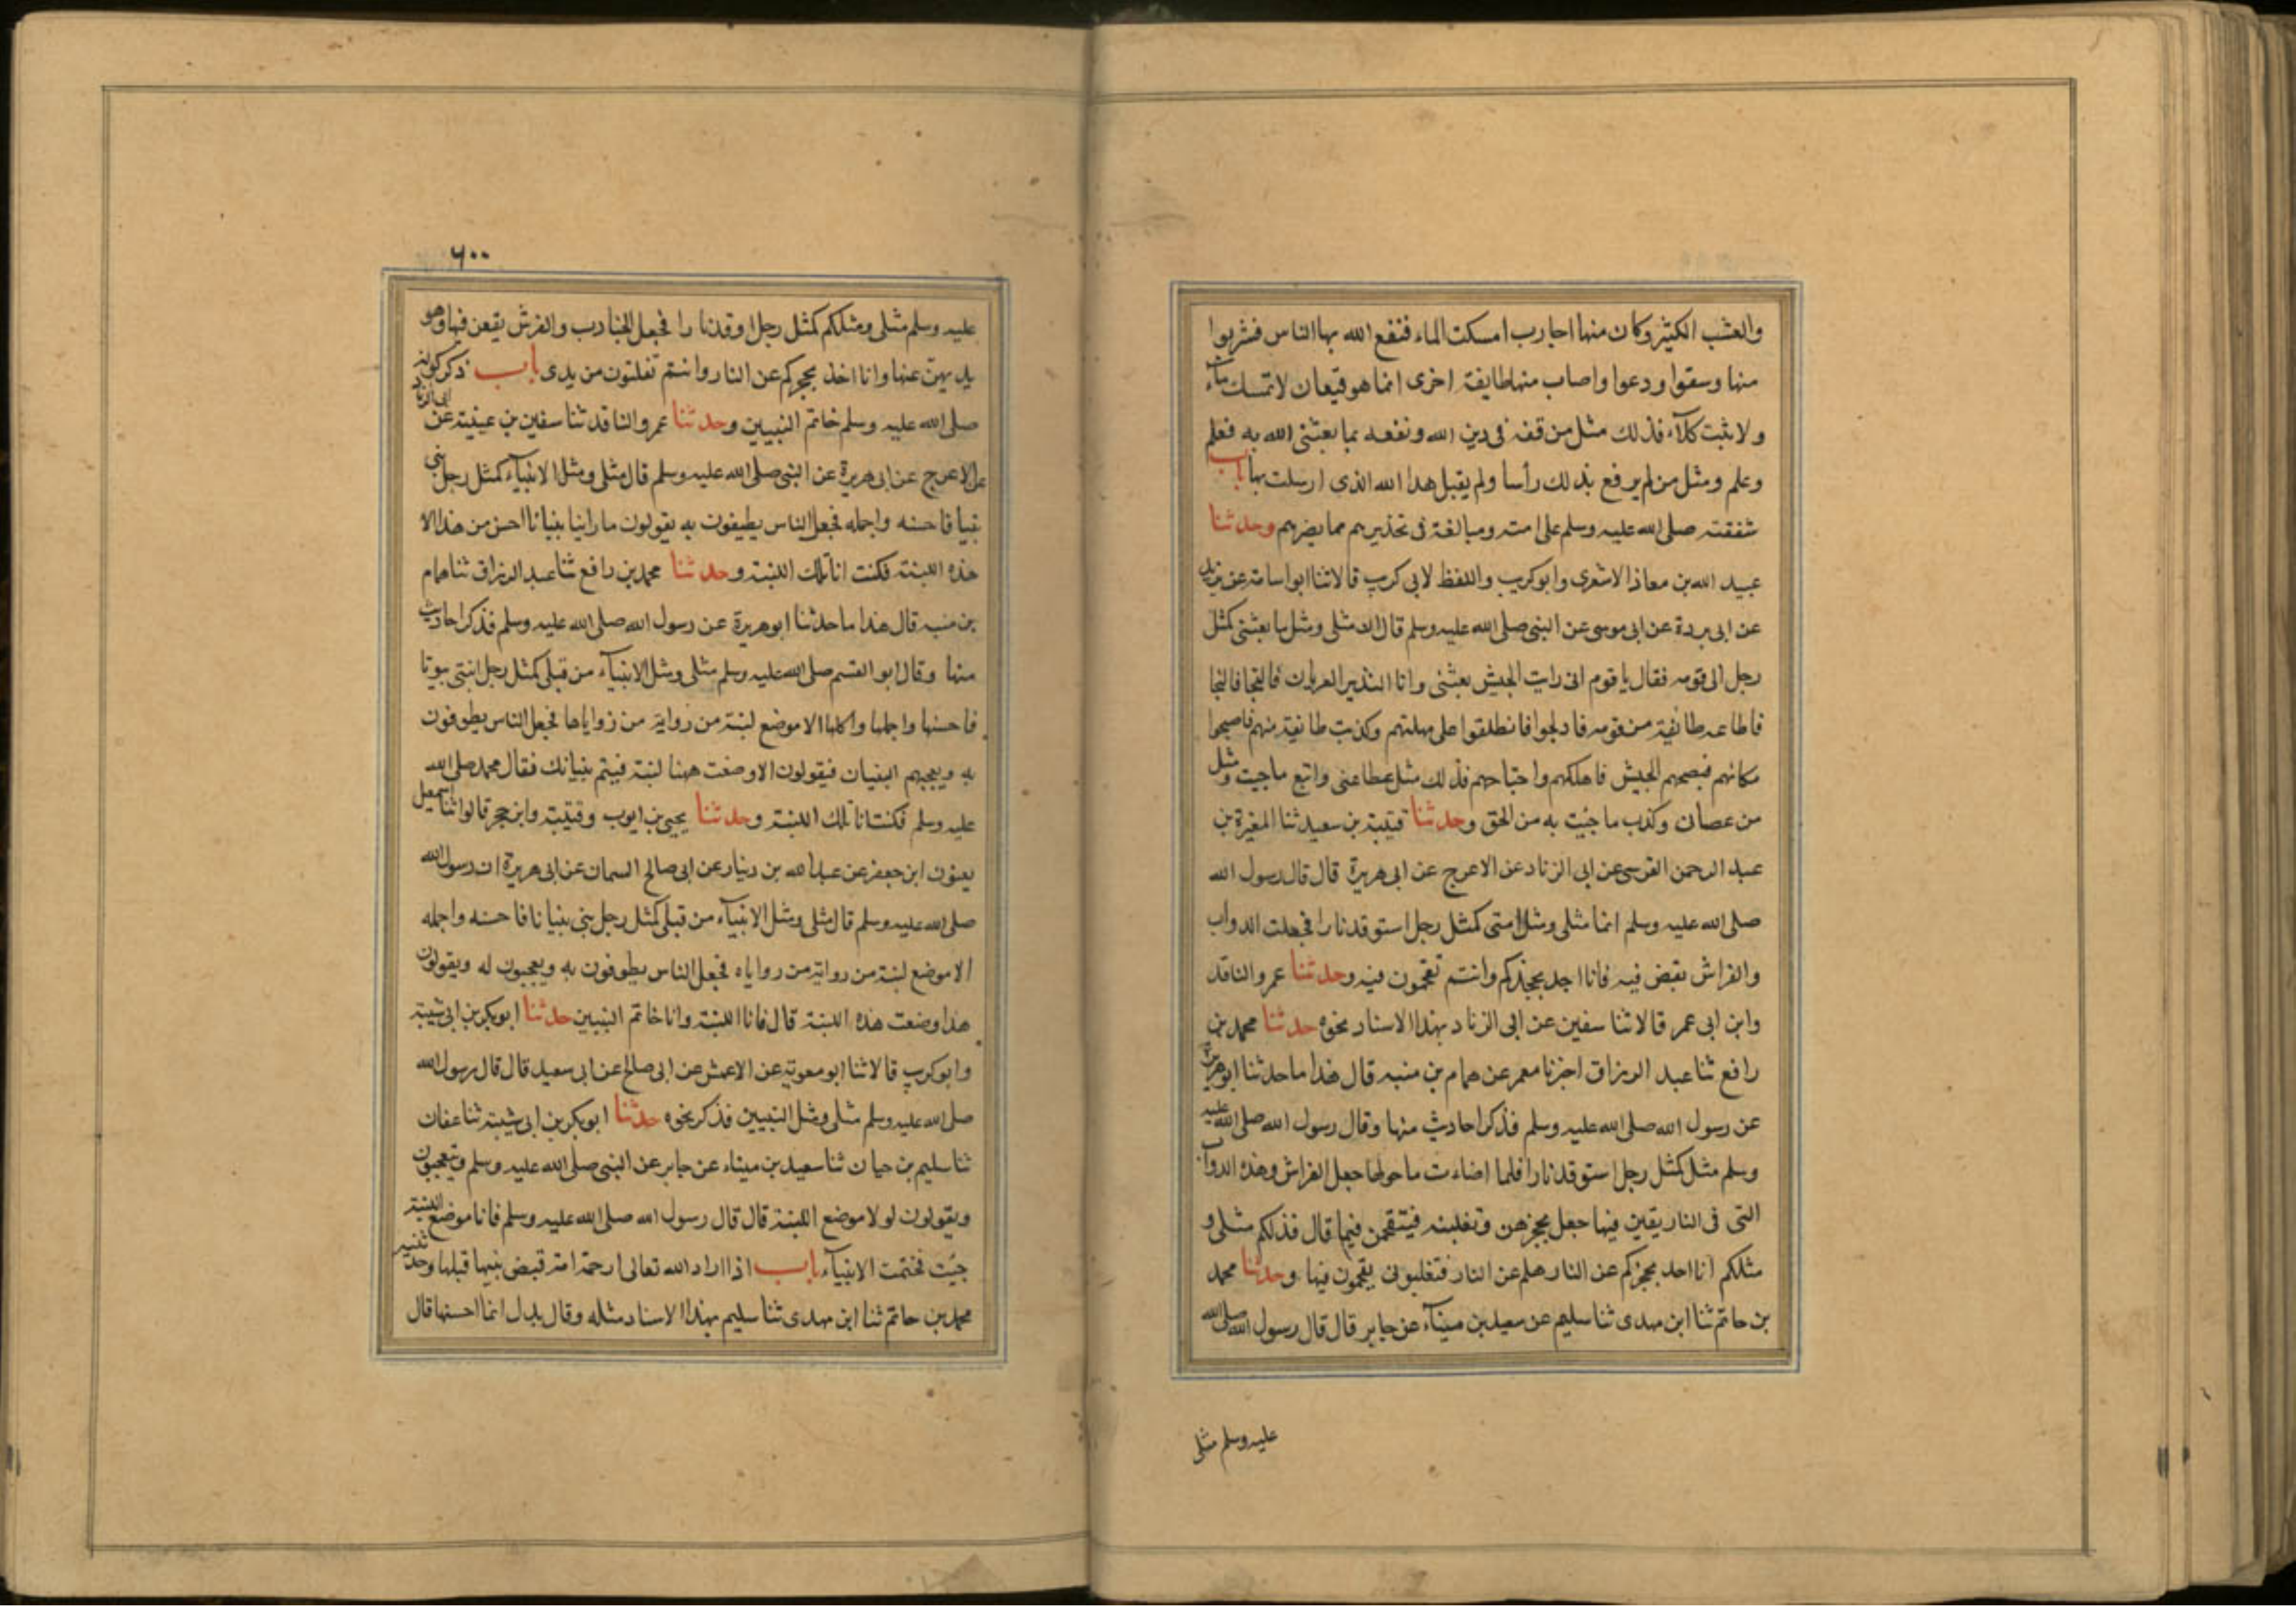 والعشب الكثير وكان منها اجارب امسكت الماء فنفع الله بها الناس فشربوا
منها وسقوا ودعوا واصاب منها طايفة اخرى انما هو قيعان لا تمسك ماء
ولا ينبت كلآء فذلك مثل من قفه فى دين الله ونفعه بما بعثنى الله به فعلم
وعلم ومثل من لم يرفع بذلك رأسا ولم يقبل هدا الله الذى ارسلت بها باب
شفقته صلى الله عليه وسلم على امته ومبالغة فى تحذيرهم مما يضرهم وحدثنا
عبيد الله بن معاذ الاشعرى وابو كريب واللفظ لابى كريب قالا ثنا ابو اسامة عن بريد
عن ابى بردة عن ابى موسى عن النبى صلى الله عليه وسلم قال ان مثلى ومثل ما بعثنى كمثل
رجل الى قومه فقال يا قوم انى رايت الجيش بعثنى وانا النذير العريان فالنجا فالنجا
فاطاعه طائفة من قومه فادلجوا فانطلقوا على مهلتهم وكذبت طائفة منهم فاصبحوا
مكانهم فصبحهم الجيش فاهلكهم واجتاحهم فذلك مثل عطاعنى واتبع ما جيت ومثل
من عصان وكذب ما جئت به من الحق وحدثنا قتيبة بن سعيد ثنا المغيرة بن
عبد الرحمن القرسى عن ابى الزناد عن الاعرج عن ابى هريرة قال قال رسول الله
صلى الله عليه وسلم انما مثلى ومثل امتى كمثل رجل استوقد نارا فجعلت الدواب
والفراش يقض فيه فانا اجد بحجذكم وانتم تقحمون فيه وحدثنا عمرو الناقد
وابن ابى عمر قالا ثنا سفين عن ابى الزناد بهذا الاسناد نحوه حدثنا محمد بن
رافع ثنا عبد الرزاق اخبرنا معمر عن همام بن منبه قال هذا ما حدثنا ابو هريرة
عن رسول الله صلى الله عليه وسلم فذكر احاديث منها وقال رسول الله صلى الله عليه
وسلم مثل كمثل رجل استوقد نارا فلما اضاءت ما حولها جعل الفراش وهذه الدواب
التى فى النار يقين فيها جعل يحجزهن وتغلبنه فيتقحمن فيها قال فذلكم مثلى و
مثلكم انا احد بحجزكم عن النار هلم عن النار فتغلبونى يقحمون فيها وحدثنا محمد
بن حاتم ثنا ابن مهدى ثنا سليم عن سعيد بن ميناء عن جابر قال قال رسول الله صلى الله
عليه وسلم مثلى
٦٠٠
عليه وسلم مثلى ومثلكم كمثل رجل اوقد نارا فجعل الجنادب والفرش يقعن فيها وهو
يذبهن عنها وانا اخذ بحجزكم عن النار وانتم تفلتون من يدى باب ذكر كونه
صلى الله عليه وسلم خاتم النبيين وحدثنا عمرو الناقد ثنا سفين بن عيينة عن ابى الزناد
عن الاعرج عن ابى هريرة عن النبى صلى الله عليه وسلم قال مثلى ومثل الانبيآء كمثل رجل بنى
بنيا فاحسنه واجمله فجعل الناس يطيفون به يقولون ما راينا بنيانا احسن من هذا الا
هذه اللبنة فكنت انا تلك اللبنة وحدثنا محمد بن رافع ثنا عبد الرزاق ثنا همام
بن منبه قال هذا ما حدثنا ابو هريرة عن رسول الله صلى الله عليه وسلم فذكر احاديث
منها وقال ابو القسم صلى الله عليه وسلم مثلى ومثل الانبيآء من قبلى كمثل رجل ابتنى بيوتا
فاحسنها واجملها واكملها الا موضع لبنة من زواية من زواياها فجعل الناس يطوفون
به ويعجبهم البنيان فيقولون الا وضعت ههنا لبنة فيتم بنيانك فقال محمد صلى الله
عليه وسلم فكنت انا تلك اللبنة وحدثنا يحيى بن ايوب وقتيبة وابن حجر قالوا ثنا اسمعيل
يعنون ابن جعفر عن عبد الله بن دينار عن ابى صالح السمان عن ابى هريرة ان رسول الله
صلى الله عليه وسلم قال مثلى ومثل الانبيآء من قبلى كمثل رجل بنى بنيانا فاحسنه واجمله
الا موضع لبنة من رواية من رواياه فجعل الناس يطوفون به ويعجبون له ويقولون
هذا وضعت هذه اللبنة قال فانا اللبنة وانا خاتم النبيين حدثنا ابو بكر بن ابى شيبة
وابو كريب قالا ثنا ابو معوية عن الاعمش عن ابى صالح عن ابى سعيد قال قال رسول الله
صلى الله عليه وسلم مثلى ومثل النبيين فذكر نحوه حدثنا ابو بكر بن ابى شيبة ثنا عفان
ثنا سليم بن حيان ثنا سعيد بن ميناء عن جابر عن النبى صلى الله عليه وسلم ويتعجبون
ويقولون لولا موضع اللبنة قال قال رسول الله صلى الله عليه وسلم فانا موضع اللبنة
جيت فختمت الانبيآء باب اذا اراد الله تعالى ارحمة امة قبض نبيها قبلها وحدثنيه
محمد بن حاتم ثنا ابن مهدى ثنا سليم بهذا الاسناد مثله وقال بدل اتما احسنها قال